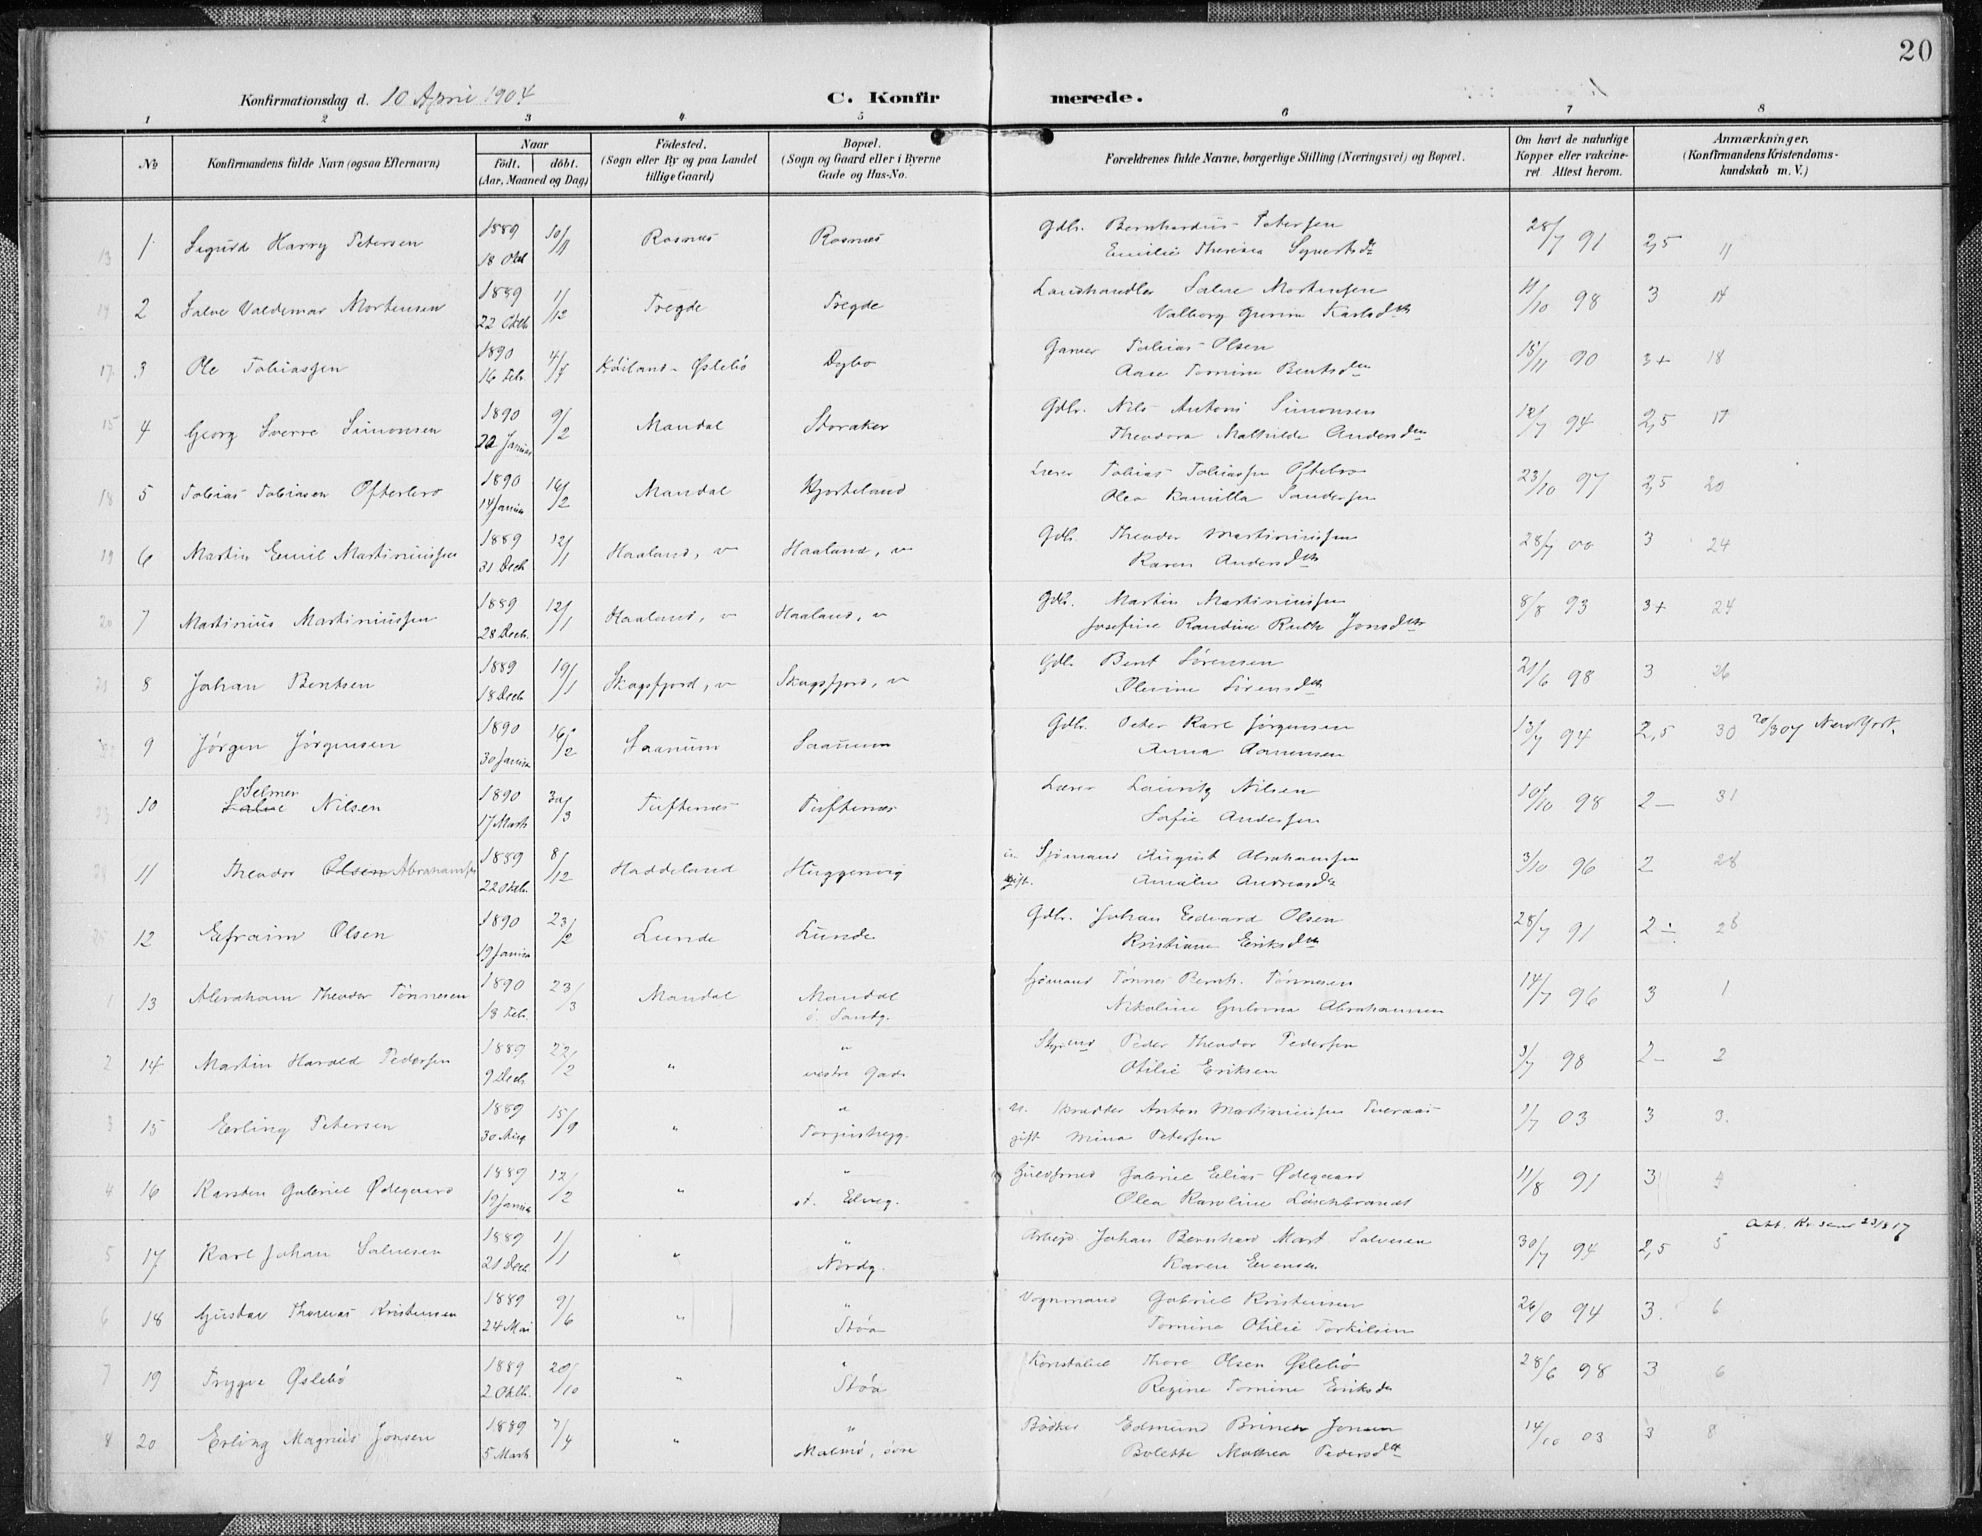 20
Konfirmationsdag d. 10 April 1904 C. Konfirmerede.
1 2 3 4 5 6 7 8
No Konfirmandens fulde Navn (ogsaa Efternavn) Naar födt. döbt. (Aar, Maaned og Dag) Födested. (Sogn eller By og paa Landet tillige Gaard) Bopæl. (Sogn og Gaard eller i Byerne Gade og Hus-No. Forældrenes fulde Navne, borgerlige Stilling (Næringsvei) og Bopæl. Om havt de naturlige Kopper eller vakcineret Attest herom. Anmærkninger. (Konfirmandens Kristendomskundskab m. V.)
13 1 Sigurd Harry Petersen 1889 18 Okt 10/11 Rosnes Rosnes Gdbr. Bernhardus Petersen 28/7 91 2,5 11
Emilie Theresea Syvertsdtr
14 2 Salve Valdemar Mortensen 1889 22 Oktb 1/12 Tregde Tregde Landhandler Salve Mortensen 11/10 98 3 14
Valborg Gurine Karlsdtr
17 3 Ole Tobiassen 1890 16 Feb. 4/4 Höiland - Øslebö Dybo Garver Tobias Olsen 15/11 90 3+ 18
Aase Tomine Bentsdtr
15 4 Georg Sverre Simonsen 1890 22 Januar 9/2 Mandal Storaker Gdbr. Nils Antoni Simonsen 12/7 94 2,5 17
Theodora Mathilde Andersdtr
18 5 Tobias Tobiasen Oftebro 1890 14 Januar 16/2 Mandal Hjorteland Lærer Tobias Tobiassen Oftebro 23/10 97 2,5 20
Olea Kamilla Sandersen
19 6 Martin Emil Martiniussen 1889 31 Decb. 12/1 Haaland, v Haaland, v Gdbr. Theodor Martiniussen 28/7 00 3 24
Karen Andersdtr
20 7 Martinius Martiniussen 1889 28 Decb. 12/1 Haaland, v Haaland, v Gdbr. Martin Martiniussen 8/8 93 3+ 24
Josefine Randine Ruth Jonsdtr
21 8 Johan Bentsen 1889 18 Decb. 19/1 Skogsfjord, v Skogsfjord, v Gdbr. Bent Sörensen 21/6 98 3 26
Olevine Sörensdtr
22 9 Jørgen Jørgensen 1890 30 Januar 16/2 Saanum Saanum Gdbr. Peder Karl Jørgensen 13/7 94 2,5 30 20/3 07 New York.
Anna Aanensen
23 10 Selmer Salve Nilsen 1890 17 Marts 30/3 Tuftenes Tuftenes Lærer Lauritz Nilsen 10/10 98 2 – 31
Sofie Andersen
24 11 Theodor Olsen Abrahamsen 1889 22 Oktb. 8/12 Haddeland Huggenvig u. Sjömand August Abrahamsen 3/10 96 2 28
gift. Amalie Andreasdtr
25 12 Efraim Olsen 1890 19 Januar 23/2 Lunde Lunde Gdbr. Johan Edvard Olsen 28/7 91 2 ÷ 28
Kristiane Eriksdtr
1 13 Abraham Theodor Tönnesen 1890 18 Feb. 23/3 Mandal Mandal Sjömand Tönnes Bernh. Tönnesen 14/7 96 3 1
ö. Sandg. Nikoline Gulovna Abrahamsen
2 14 Martin Harald Pedersen 1889 9 Decb. 22/2 " " Styrmd Peder Theodor Pedersen 3/7 98 2 – 2
vestre Gade Otilie Eriksen
3 15 Erling Petersen 1889 30 Aug. 15/9 " " u. Skrædder Anton Martiniussen 1/7 03 3 3.
gift Mina Petersen
4 16 Karsten Gabriel Ødegaard 1889 19 Januar 12/2 " " Guldsmed Gabriel Elias Ødegaard 11/8 91 3 4
st. Elveg. Olea Karoline Löschbrandt
5 17 Karl Johan Salvesen 1889 21 Decb. 1/1 " " Arbejd. Johan Bernhard Mart. Salvesen 30/7 94 2,5 5 Att.
Nordg. Karen Evensen
6 18 Gustav Thomas Kristensen 1889 24 Mai 9/6 " " Vognmand Gabriel Kristensen 26/6 94 3. 6
Stöa Tomine Otilie Torkilsen
7 19 Trygve Øslebö 1889 2 Oktb. 20/10 " " Konstabel Thore Olsen Øslebö 28/6 98 3 6
Stöa Regine Tomine Eriksdtr
8 20 Erling Magnus Jonsen 1889 5 Marts 7/4 " " Bödker Edmund Brinck Jonsen 14/10 03 3 8
Malmö, sön Bolette Mathea Pedersdtr